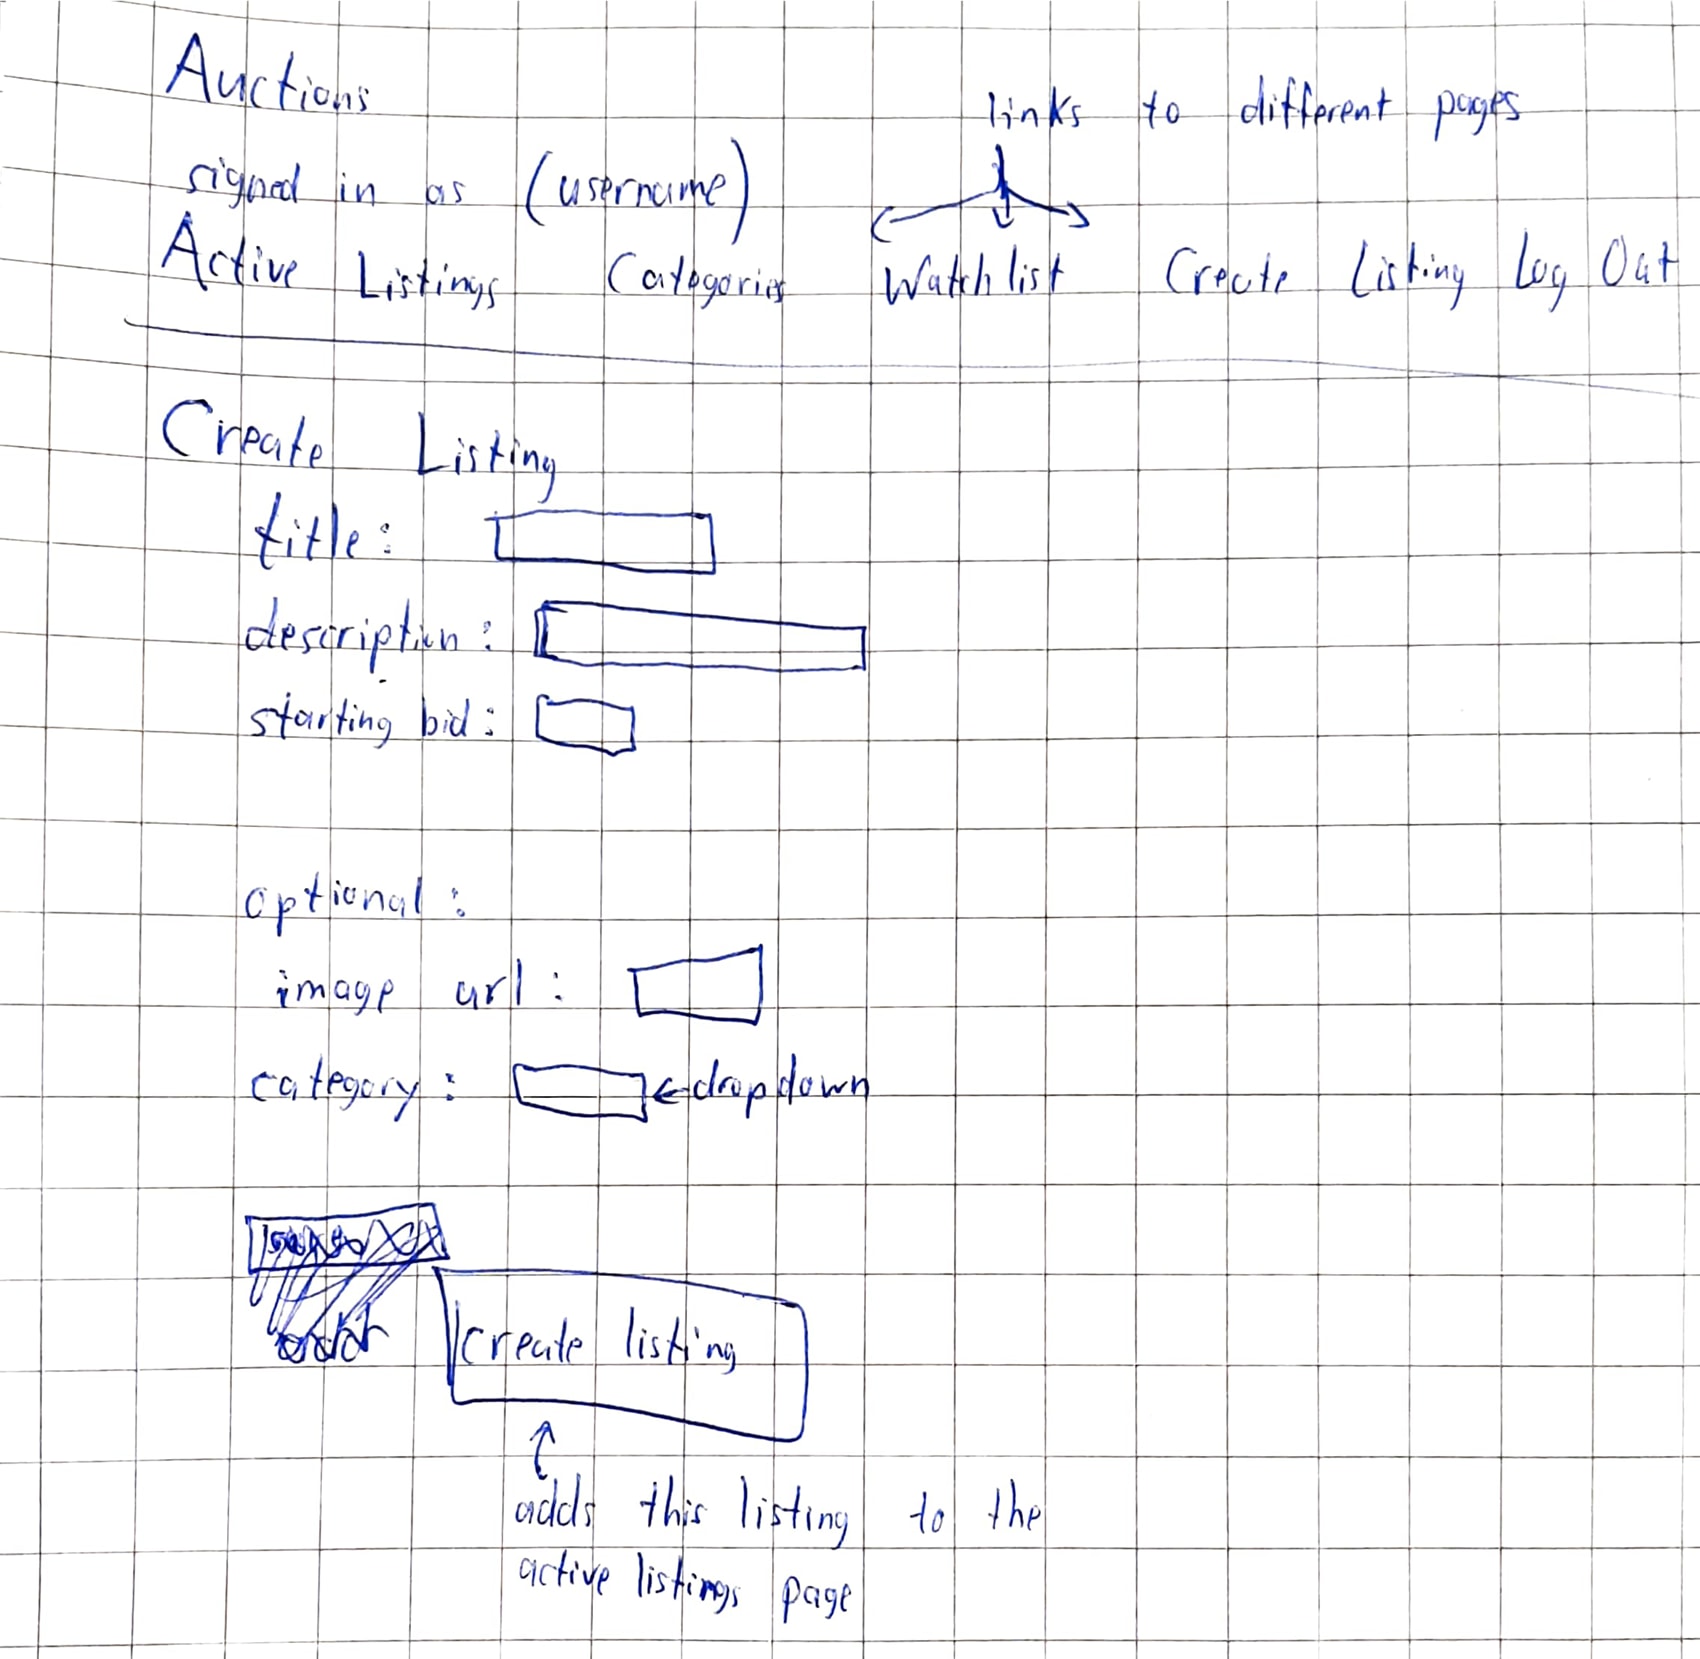 Auctions
links to different pages
signed in as (username)
Active Listings Categories Watchlist Create Listing Log Out
Create Listing
title:
description:
starting bid:
optional:
image url:
category: dropdown
create listing
adds this listing to the
active listings page